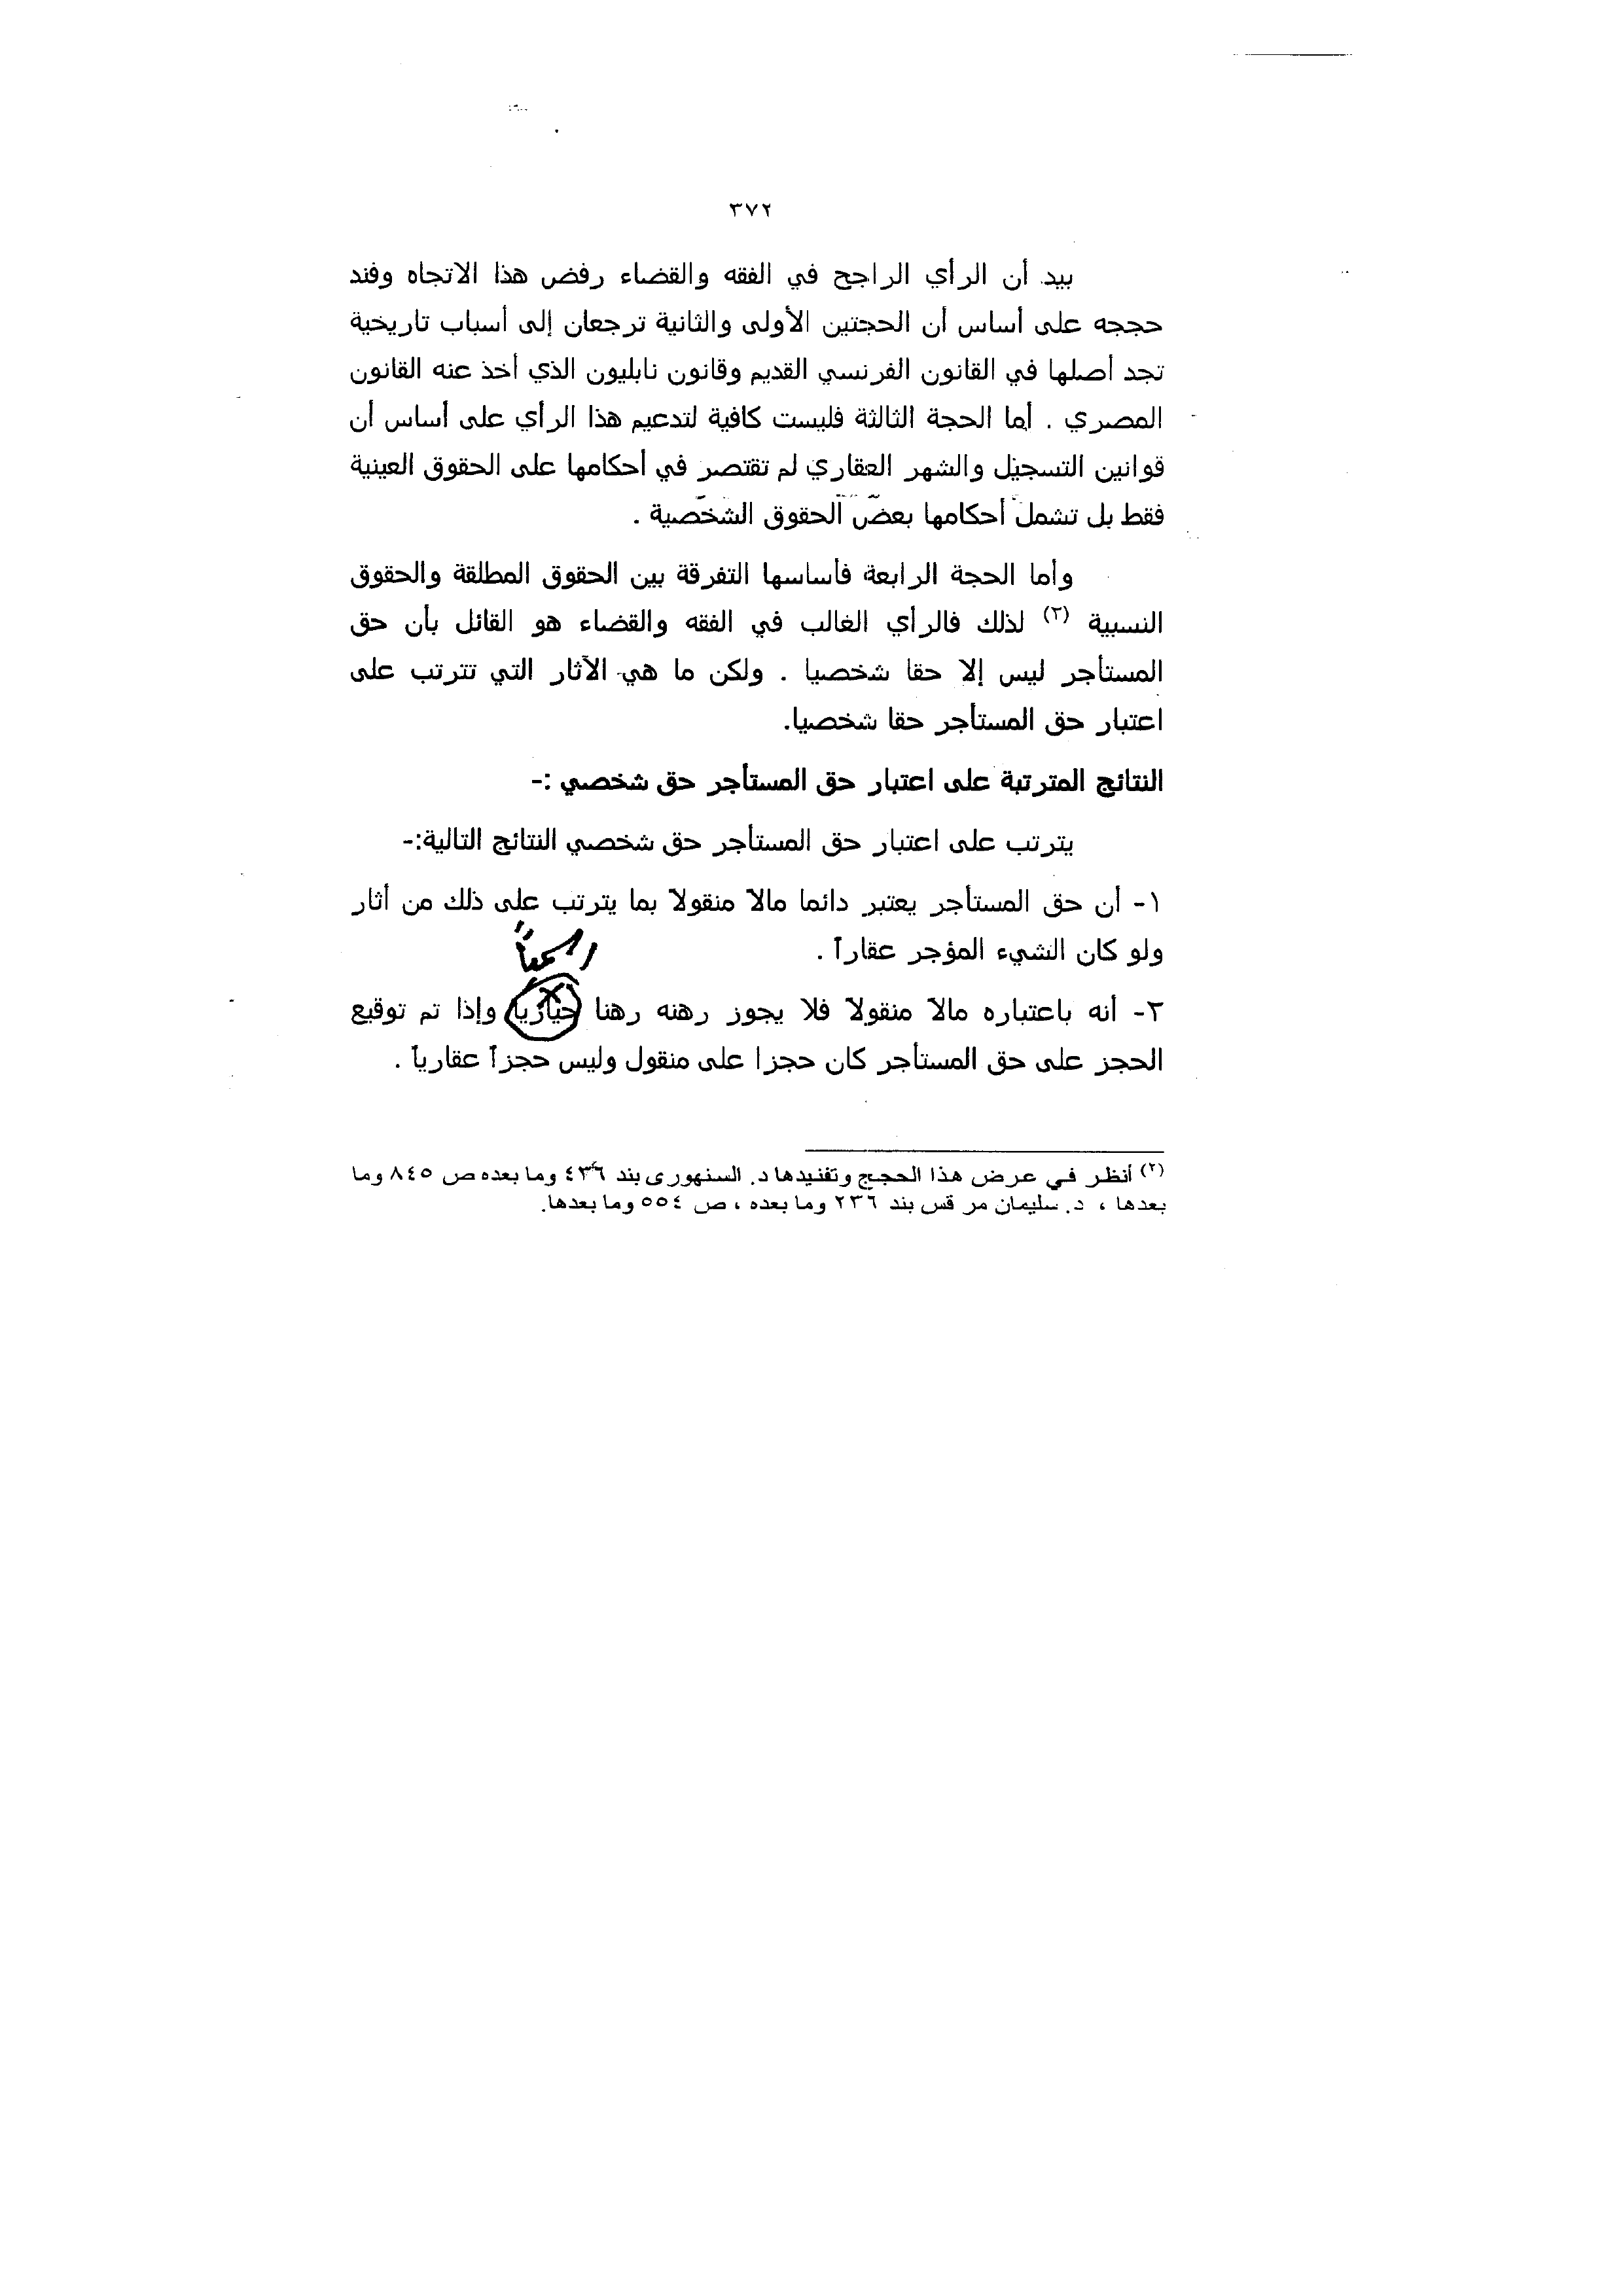 ٣٧٢
بيد أن الرأي الراجح في الفقه والقضاء رفض هذا الاتجاه وفند
حججه على أساس أن الحجتين الأولى والثانية ترجعان إلى أسباب تاريخية
تجد أصلها في القانون الفرنسي القديم وقانون نابليون الذي أخذ عنه القانون
المصري . أما الحجة الثالثة فليست كافية لتدعيم هذا الرأي على أساس أن
قوانين التسجيل والشهر العقاري لم تقتصر في أحكامها على الحقوق العينية
فقط بل تشمل أحكامها بعض الحقوق الشخصية .
وأما الحجة الرابعة فأساسها التفرقة بين الحقوق المطلقة والحقوق
النسبية (٢) لذلك فالرأي الغالب في الفقه والقضاء هو القائل بأن حق
المستأجر ليس إلا حقا شخصيا . ولكن ما هي الآثار التي تترتب على
اعتبار حق المستأجر حقا شخصيا.
النتائج المترتبة على اعتبار حق المستأجر حق شخصي :-
يترتب على اعتبار حق المستأجر حق شخصي النتائج التالية:-
١- أن حق المستأجر يعتبر دائما مالا منقولا بما يترتب على ذلك من أثار
ولو كان الشيء المؤجر عقاراً .
٢- أنه باعتباره مالاً منقولا فلا يجوز رهنه رهنا حيازيا وإذا تم توقيع
الحجز على حق المستأجر كان حجزا على منقول وليس حجزاً عقارياً .
(٢) أنظر في عرض هذا الحجج وتفنيدها د. السنهورى بند ٤٣٦ وما بعده ص ٨٤٥ وما
بعدها ، د. سليمان مرقس بند ٢٣٦ وما بعده ، ص ٥٥٤ وما بعدها.